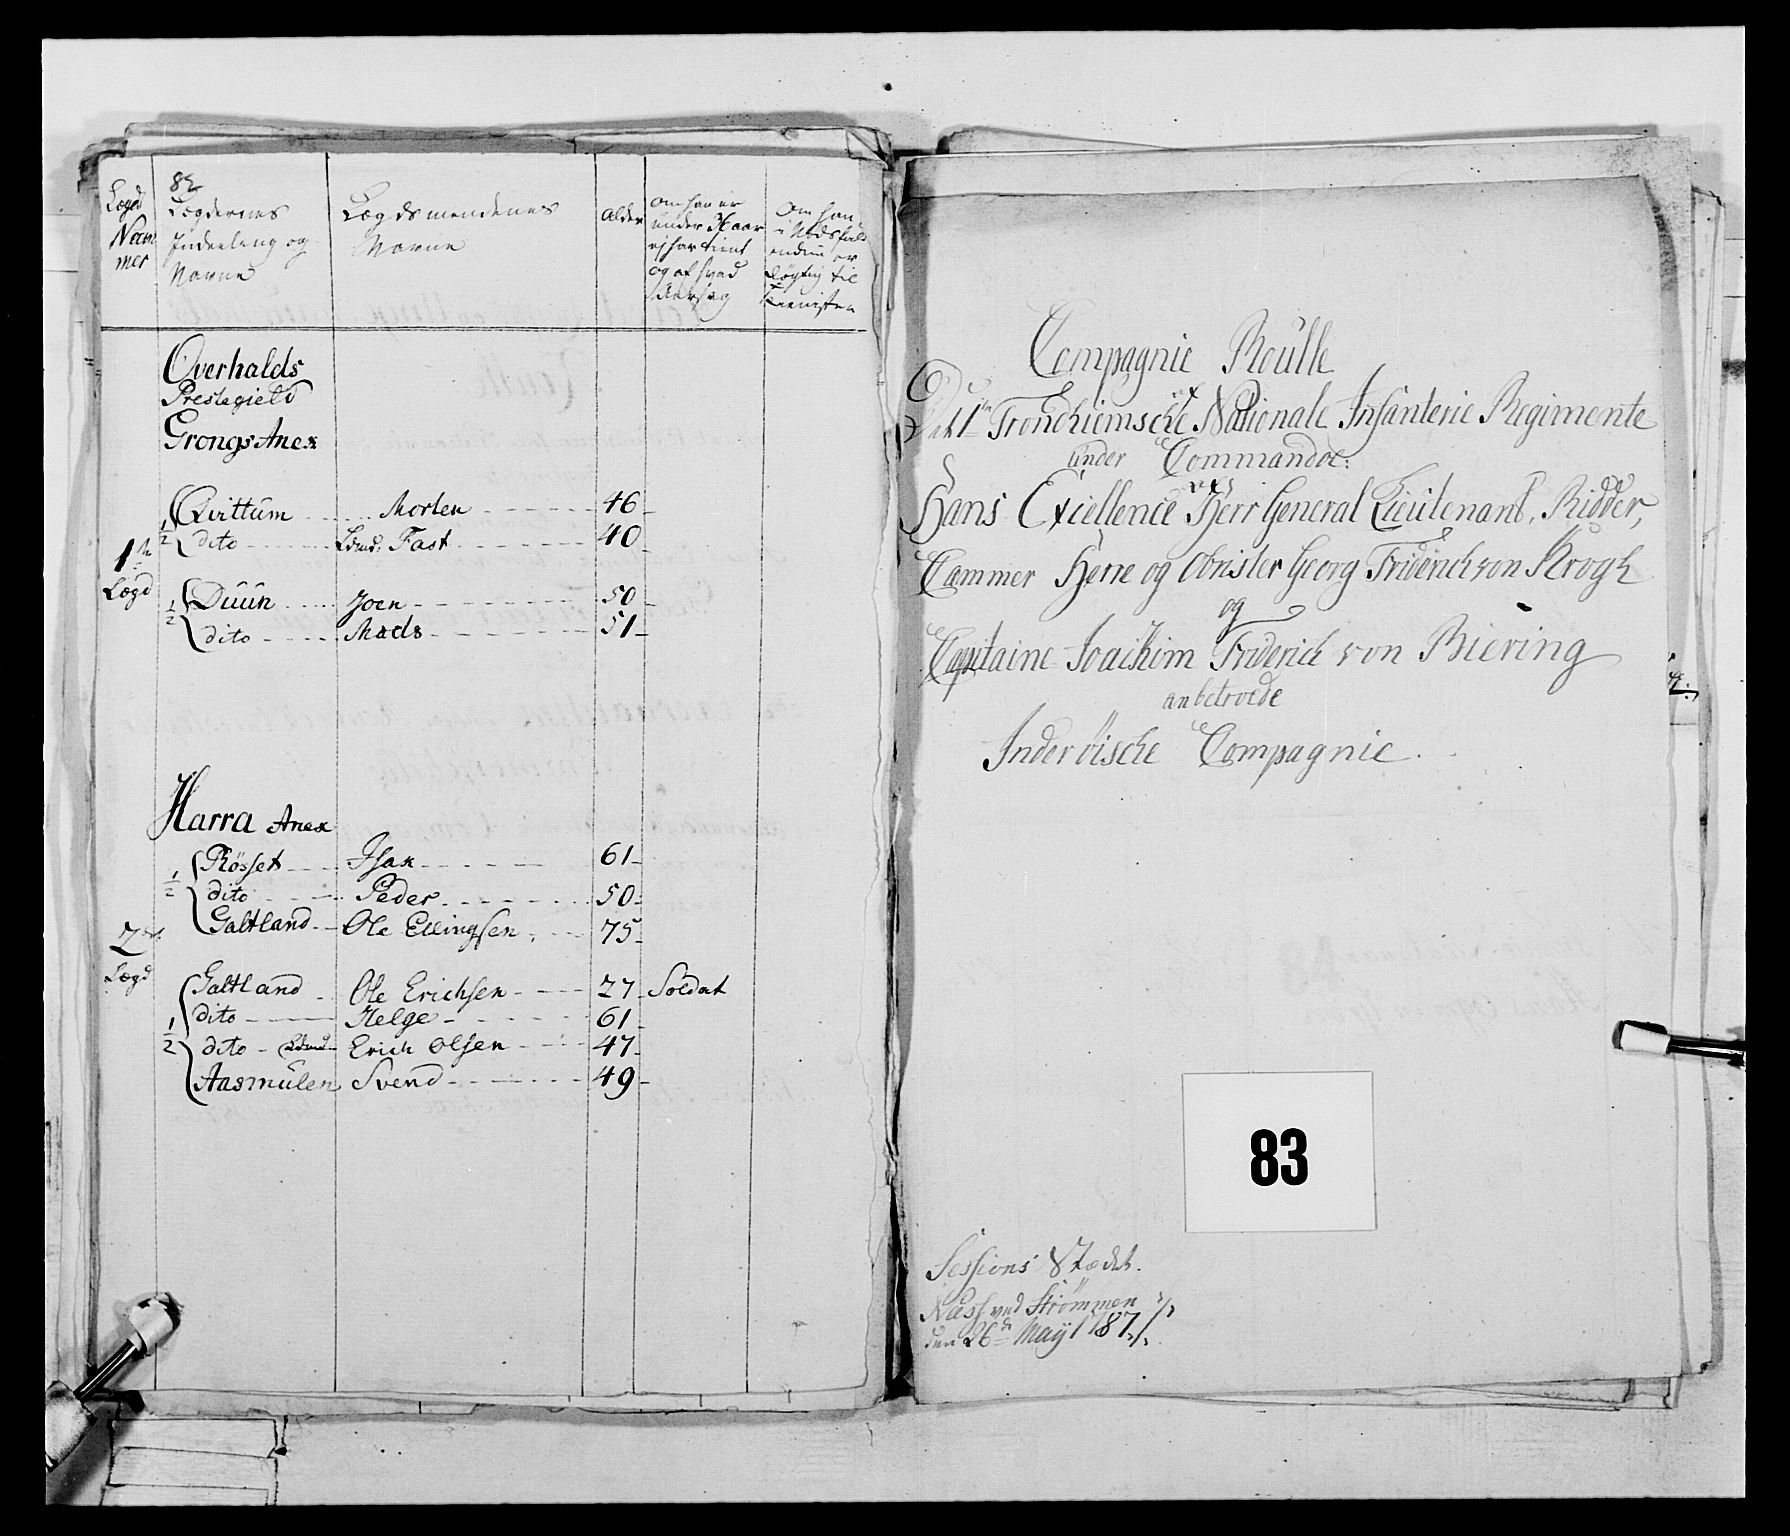 82
Lægd Num mer
Lægdernes Indeeleng og Navne
Lægdsmendenes Navne
Alder
om han er under 36 aar ej har tient og af hvad Aarsag
Om han i Nodsfald endnu er døgtig til Tienisten
Overhalds
Prestegield
Grongs Anex
1te Lægd
1/2
Qvittum Morten 46
dito Ldmd. Fast 40
1/2
Duun Joen 50
dito Mads 51
Harra Anex
2den Lægd
1/2
Røsset Isak 61
dito Peder 50
Galtland Ole Ellingsen 75
1/2
Galtland Ole Erichsen 27 Soldat
dito Helge 61
dito Ldmd Erich Olsen 47
Aasmulen Svend 49
Compagnie Roulle
Det 1te Trondhiemsche Nationale Infanterie Regimente
under Commandoe:
Hans Excellence Herr General Lieutenant, Ridder,
Cammer Herre og Obrister Georg Friderich von Krogh
og
Capitaine Joachim Friderich von Biering
anbetroede
Inderöische Compagnie.
83
Sessions Stædet.
Næss ved Strømmen
den 26de May 1787